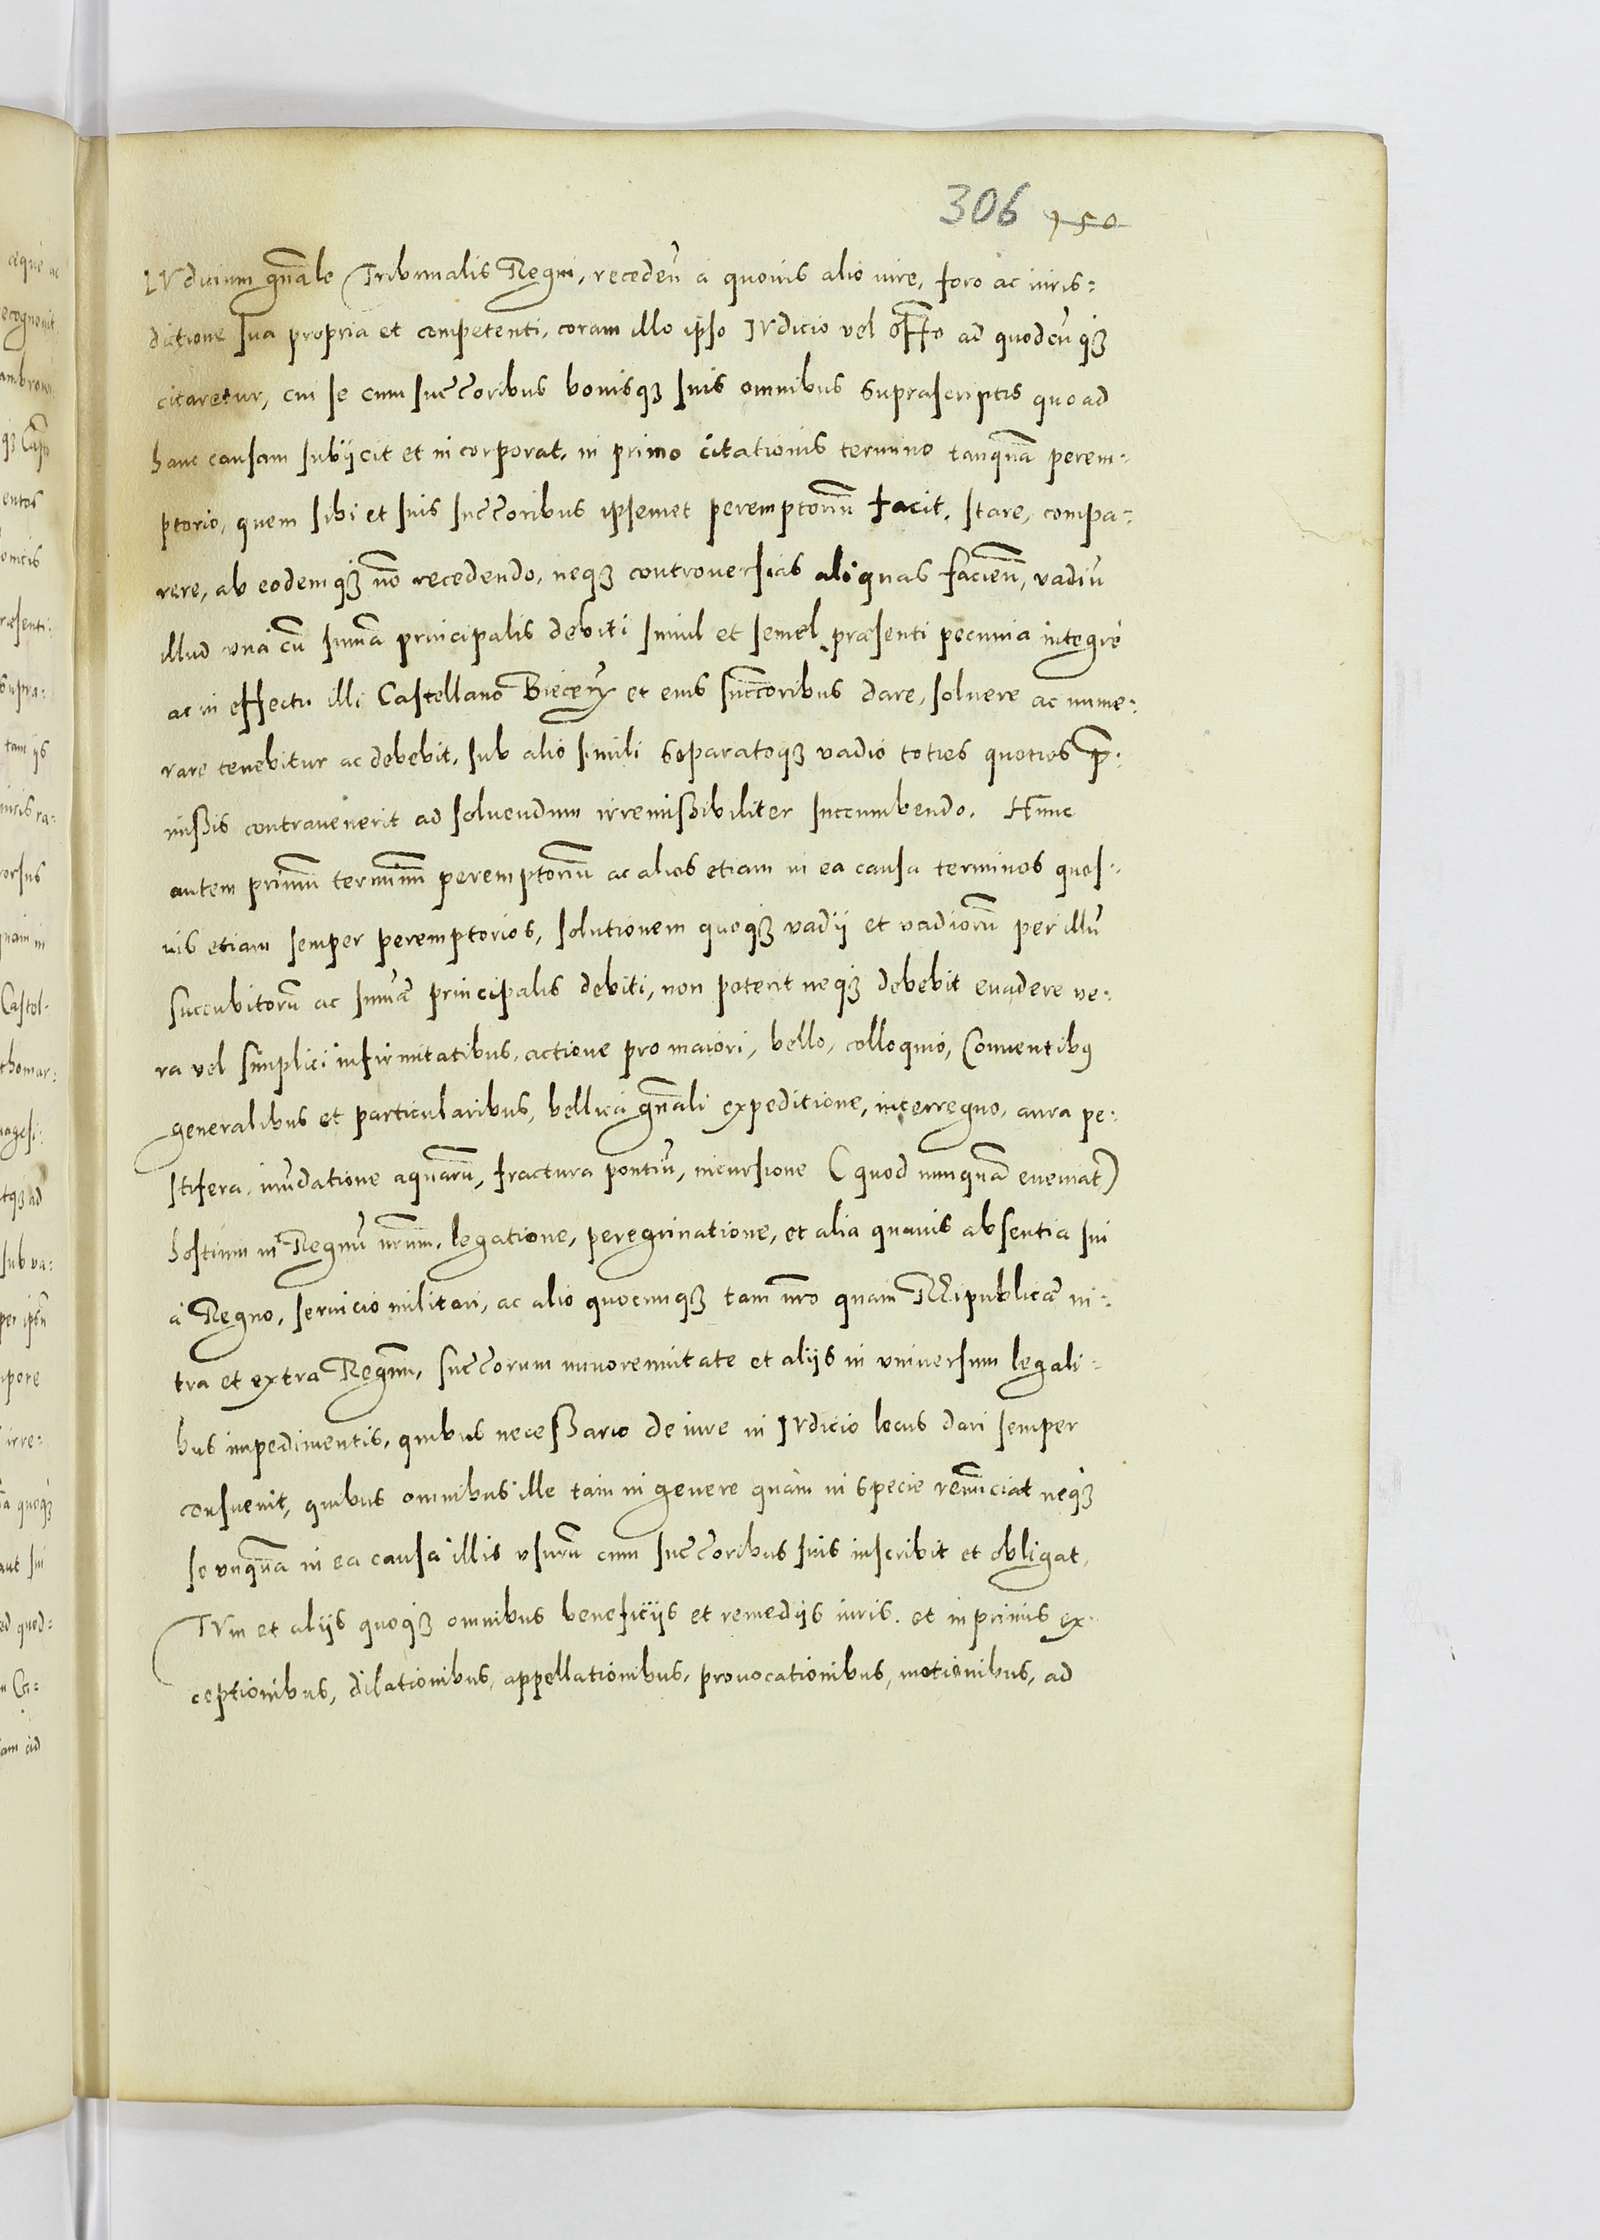 306 150
IVdicium gnäle Tribunalis Regni, recedeñ à quouis alio iure, foro ac iuris=
dictione sua propria et competenti, coram illo ipso IVdicio vel offo ad quodcuq3
citaretur, cui se cum succoribus bonisq3 suis omnibus supra scriptis quoad
hanc causam subijcit et incorporat, in primo citationis termino tanquã perem=
ptorio, quem sibi et suis succoribus ipsemet peremptoriũ facit, stare, compa=
rere, ab eodemq3 nõ recedendo, neq3 controuersias aliquas facieñ, vadiũ
illud vnà cũ summa principalis debiti simul et semel praesenti pecunia integrè
ac in effectu illi Castellano Bieceñ et eius succoribus dare, soluere ac nume=
rare tenebitur ac debebit, sub alio simili separatoq3 vadio toties quoties p̃=
mißis contrauenerit ad soluendum irremißibiliter succumbendo. Hunc
autem primũ terminũ peremptoriũ ac alios etiam in ea causa terminos quos=
uis etiam semper peremptorios, solutionem quoq3 vadij et vadiorũ per illũ
succubitorũ ac summã principalis debiti, non poterit neq3 debebit euadere ve=
ra vel simplici infirmitatibus, actione pro maiori, bello, colloquio, Conuentib9
generalibus et particularibus, bellica gnäli expeditione, interregno, aura pe=
stifera, inũdatione aquarũ, fractura pontiũ, incursione (quod nunquã eueniat)
hostium in Regnũ nrũm, legatione, peregrinatione, et alia quauis absentia sui
à Regno, seruicio militari, ac alio quocunq3 tam nro quàm Reipublicae in=
tra et extra Regnũ, succorum minorennitate et alijs in vniuersum legali=
bus impedimentis, quibus neceßario de iure in IVdicio locus dari semper
consueuit, quibus omnibus ille tam in genere quàm in specie renũciat neq3
se vnquã in ea causa illis vsurũ cum succoribus suis inscribit et obligat,
TVm et alijs quoq3 omnibus beneficijs et remedijs iuris, et inprimis ex=
ceptionibus, dilationibus, appellationibus, prouocationibus, motionibus, ad